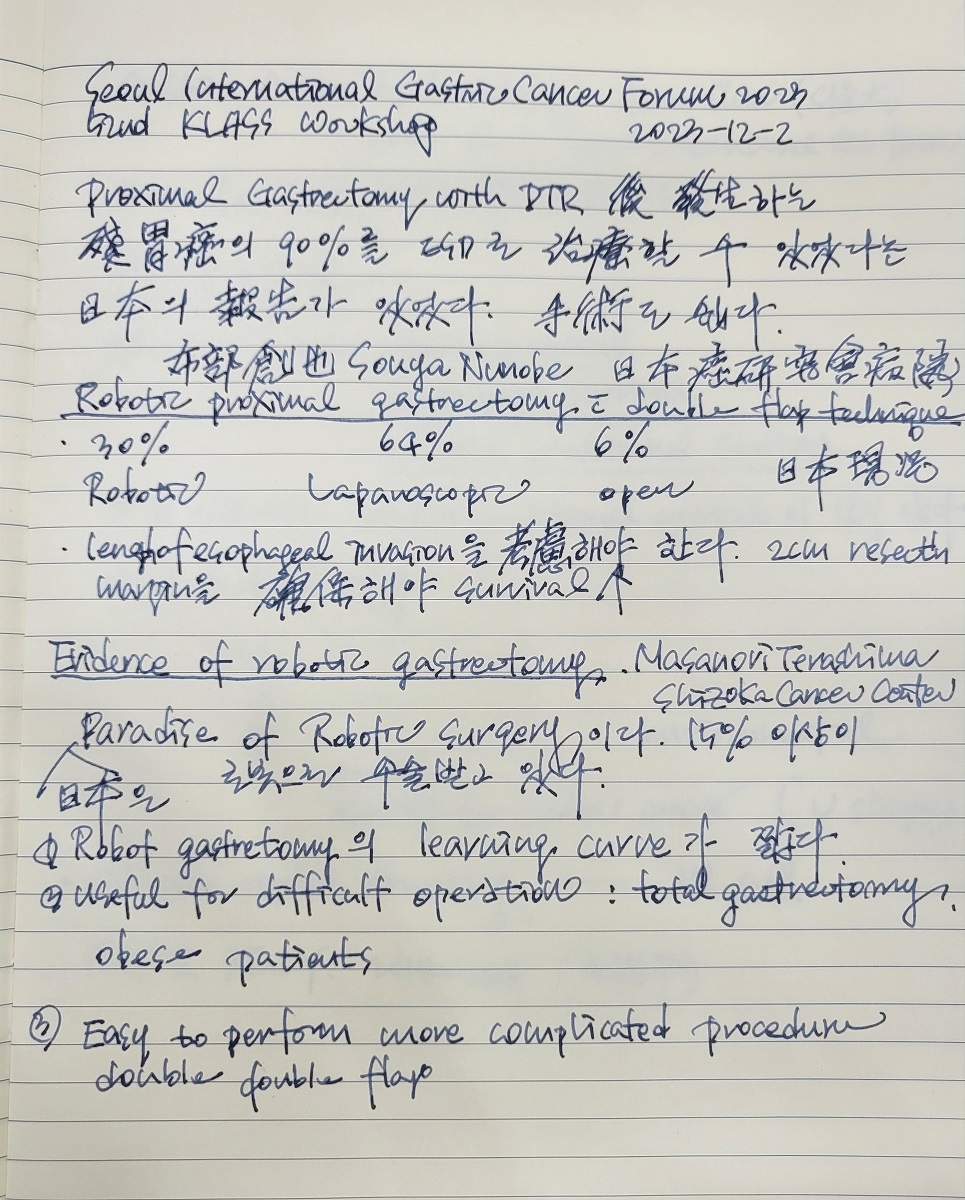 Seoul International Gastric Cancer Forum 2023
52nd KLASS Workshop 2023-12-2
Proximal Gastrectomy with DTR 後 發生하는
殘胃癌의 90%를 ESD로 治療할 수 있었다는
日本의 報告가 있었다. 手術도 했다.
布部創也 Souya Nunobe 日本癌研究會病院
Robotic proximal gastrectomy c̄ double flap technique
· 30% 64% 6% 日本現況
Robotic Laparoscopic open
· length of esophageal invasion을 考慮해야 한다. 2cm resectn
margin을 確保해야 survival ↑
Evidence of robotic gastrectomy, Masanori Terashima
Shizoka Cancer Center
Paradise of Robotic surgery이다. 15% 이상이
日本은 로봇으로 수술받고 있다.
① Robot gastretomy의 learning curve가 짧다.
② Useful for difficult operation : total gastrectomy,
obese patients
③ Easy to perform more complicated procedure
double double flap